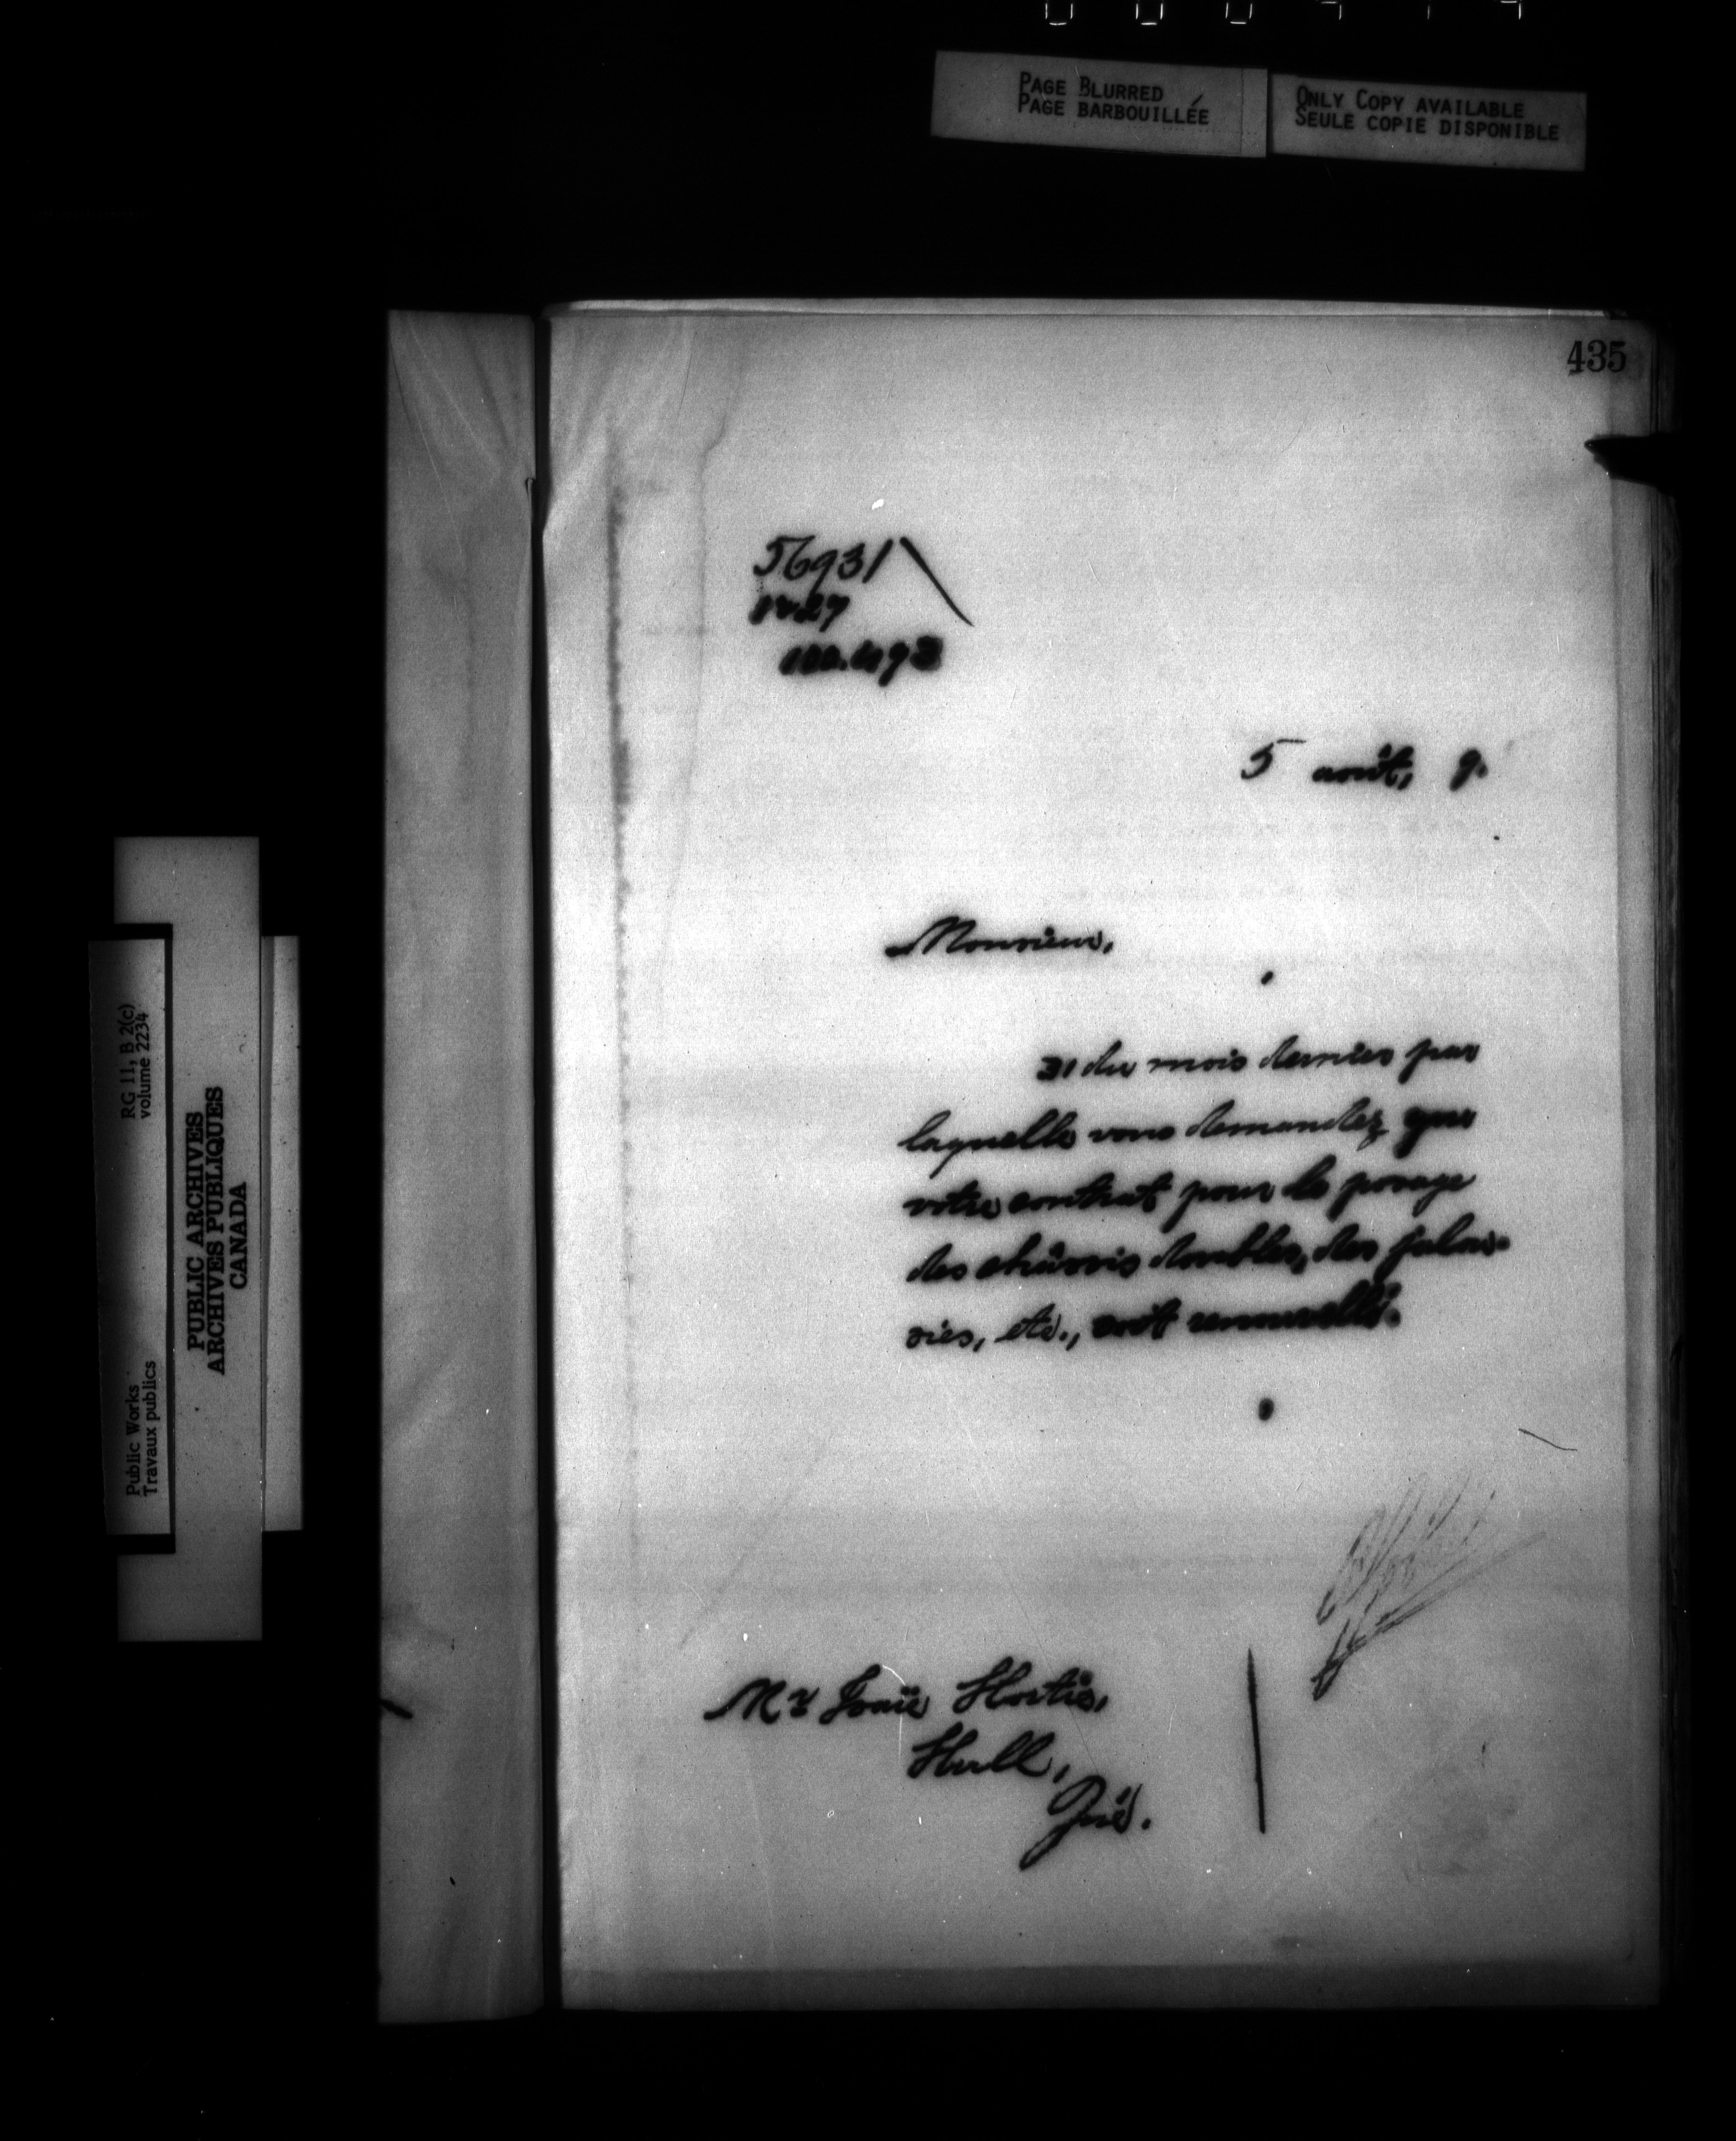 PAGE BLURRED
PAGE BARBOUILLÉE
ONLY COPY AVAILABLE
SEULE COPIE DISPONIBLE
435
56931
5 août, 9.
Monsieur,
31 du mois dernier par
laquelle vous demandez que
votre contrat pour le posage
des châssis doubles, des jalou-
sies, etc., soit renouvellé.
Mr
Hull,
Qué.
RG 11, B 2(c)
volume 2234
PUBLIC ARCHIVES
ARCHIVES PUBLIQUES
CANADA
Public Works
Travaux publics